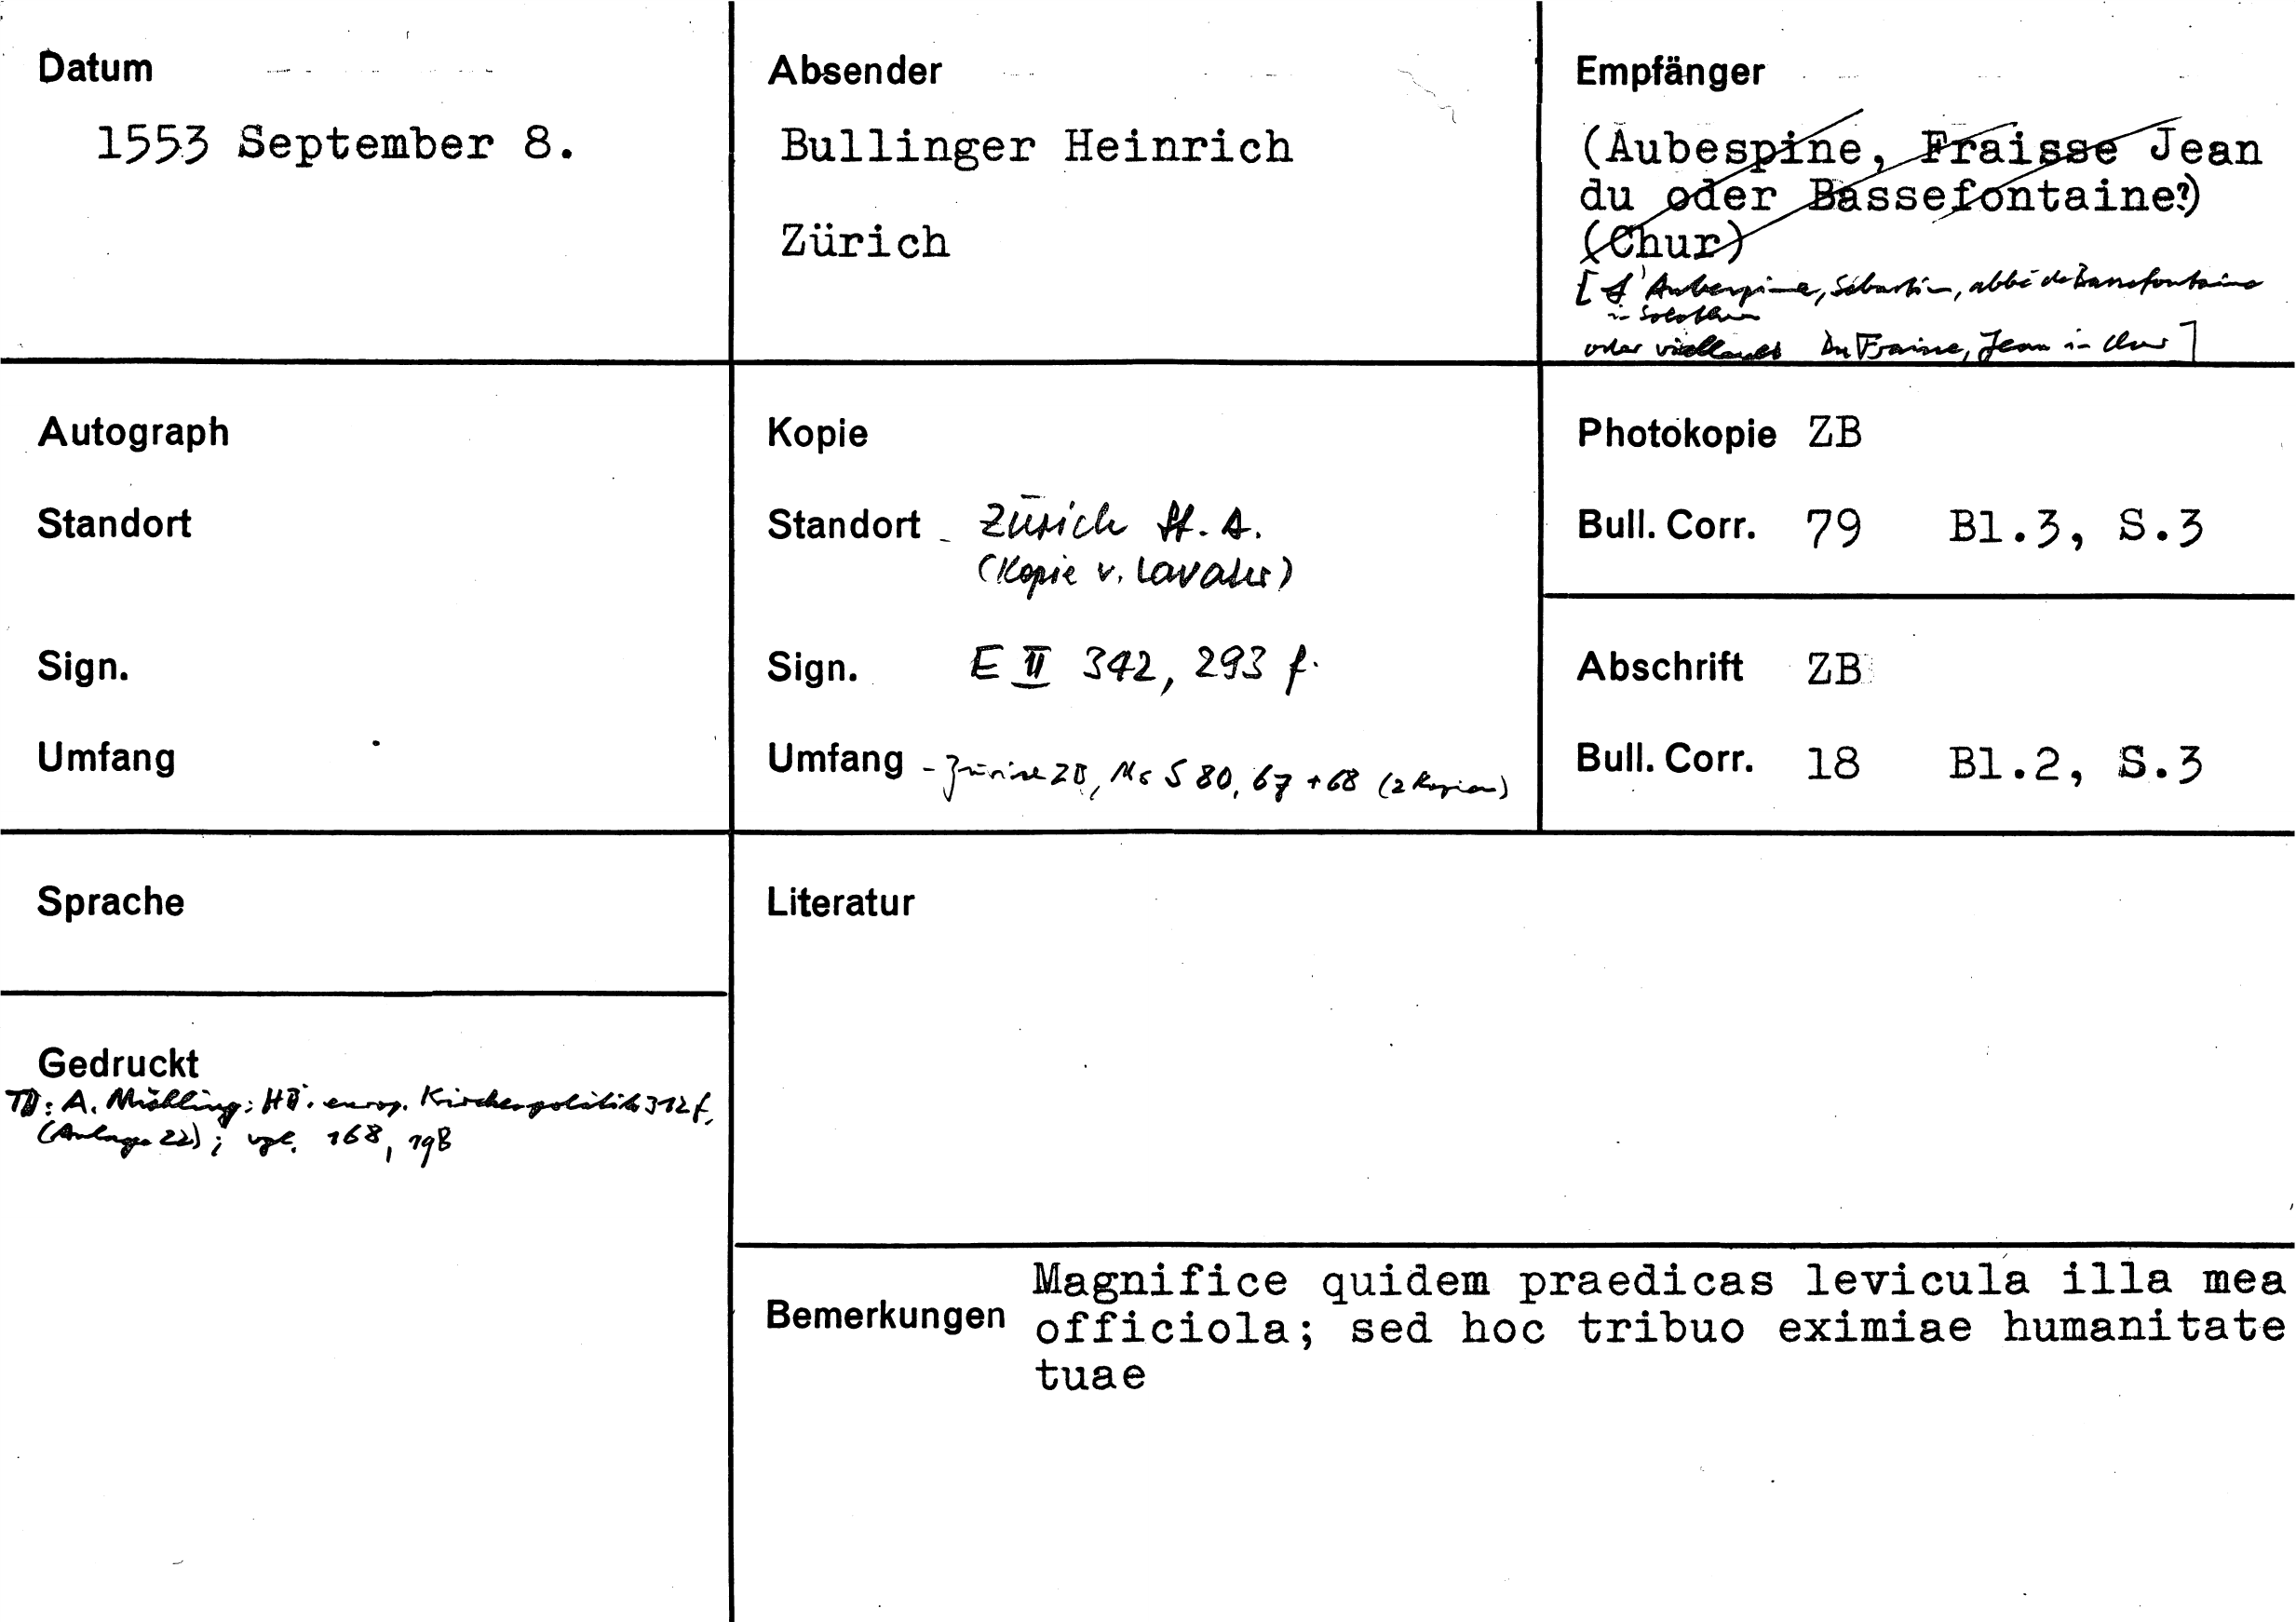 Datum
1553 September 8.
Absender
Bullinger Heinrich
Zürich
Empfänger
(Aubespine, Fraisse Jean
du oder Bassefontaine?)
(Chur)
[d'Aubespine, Sébastien, abbé de Bassefontaine
in Solothurn
oder vielleicht Du Fraisse, Jean in Chur]
Autograph
Standort
Sign.
Umfang
Kopie
Standort Zürich St. A.
(Kopie v. Lavater)
Sign. E II 342, 293 f.
Umfang - Zürich ZB, Ms S 80, 67 + 68 (2 Kopien)
Photokopie ZB
Bull. Corr. 79 Bl.3, S.3
Abschrift ZB
Bull. Corr. 18 Bl.2, S.3
Sprache
Gedruckt
TD: A. Mühling: HB. europ. Kirchenpolitik 312 f.
(Anlage 22); vgl. 168, 198
Literatur
Bemerkungen
Magnifice quidem praedicas levicula illa mea
officiola; sed hoc tribuo eximiae humanitate
tuae